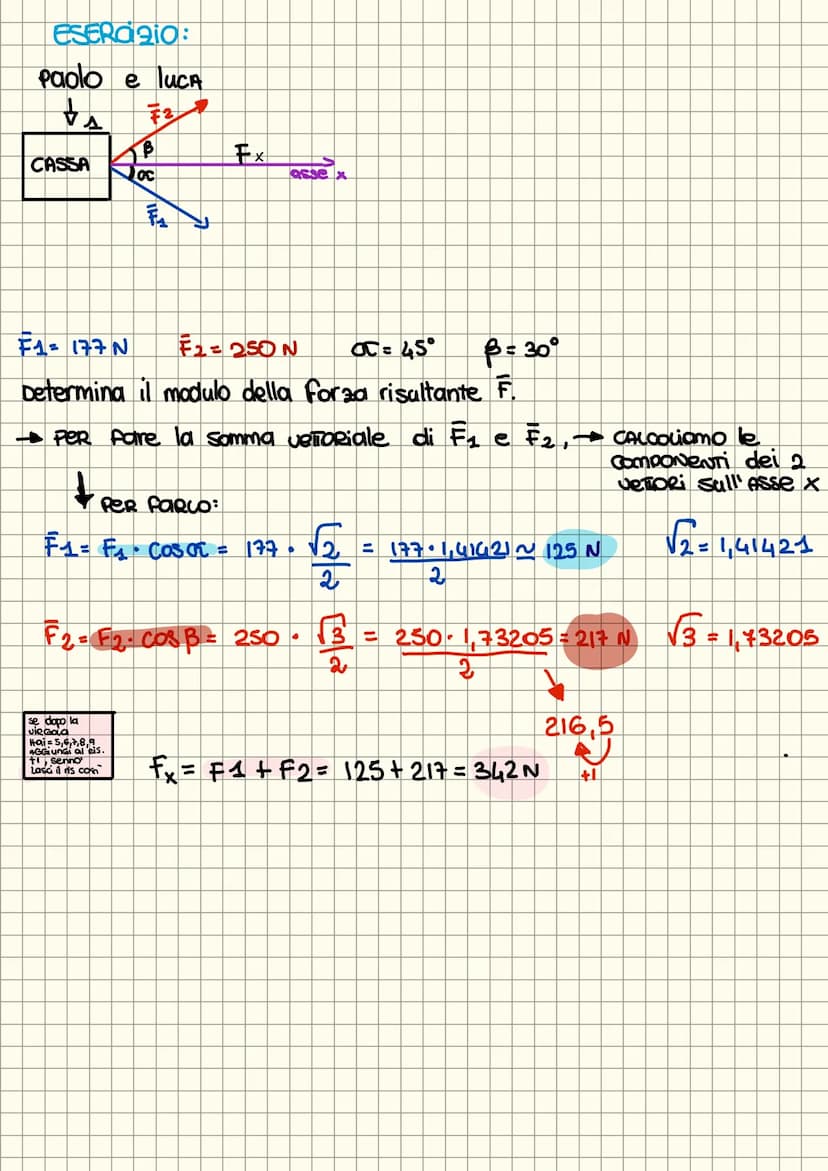 ESERCIZIO:
Paolo e LUCA
↓ 1
F̅2
β
CASSA
Fx
α
asse x
F̅1
F̅1 = 177 N F̅2 = 250 N α = 45° β = 30°
Determina il modulo della forza risultante F̅.
→ PER fare la somma VETTORIALE di F̅1 e F̅2, → CALCOLIAMO le
COMPONENTI dei 2
VETTORI sull'ASSE x
↓ PER FARLO:
F̅1 = F1 · cos α = 177 · √2/2 = 177 · 1,41421/2 ≃ 125 N √2 = 1,41421
F̅2 = F2 · cos β = 250 · √3/2 = 250 · 1,73205/2 = 217 N √3 = 1,73205
216,5
+1
se dopo la
virgola
Hai = 5,6,7,8,9
aggiungi al ris.
+1, sennò
Lasci il ris così
Fx = F1 + F2 = 125 + 217 = 342 N